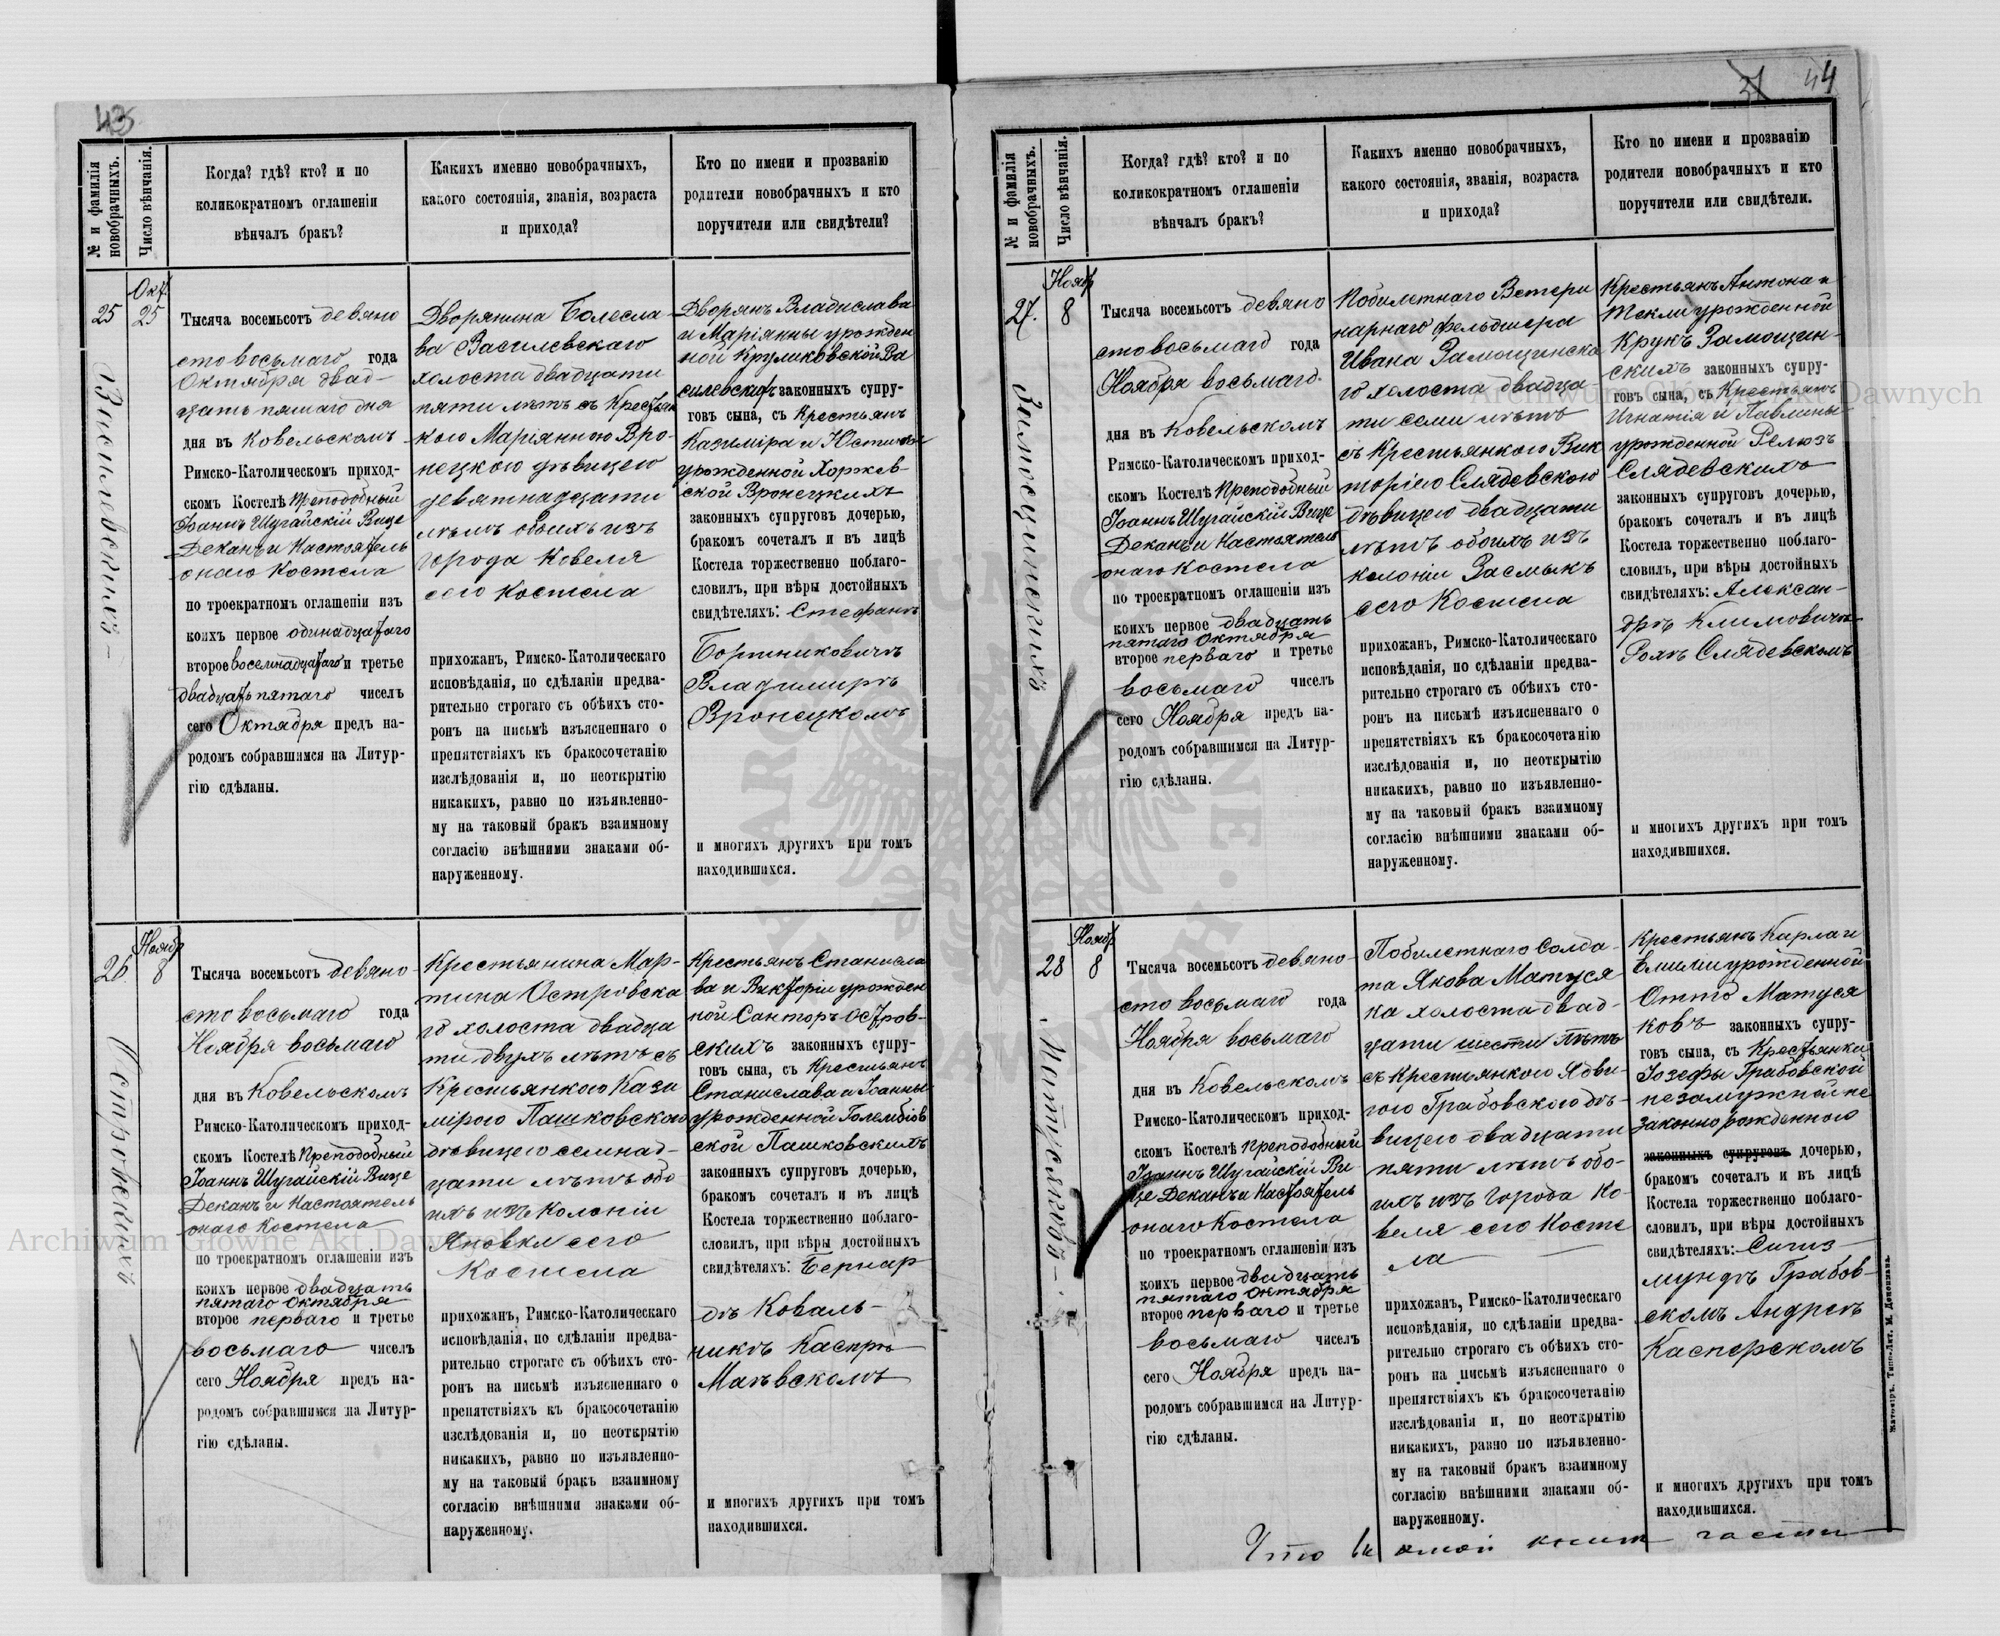 43
№ и фамилія новобрачныхъ.
Число вѣнчанія.
Когда? гдѣ? кто? и по
коликократномъ оглашеніи
вѣнчалъ бракъ?
Какихъ именно новобрачныхъ,
какого состоянія, званія, возраста
и прихода?
Кто по имени и прозванію
родители новобрачныхъ и кто
поручители или свидѣтели?
25
Окт.
25
Тысяча восемьсотъ девяно
сто восьмаго года
Октября двад-
цать пятаго дня
дня въ Ковельскомъ
Римско-Католическомъ приход-
скомъ Костелѣ Преподобный
Іоаннъ Шугайскій Вице
Деканъ и Настоятель
онаго Костела
по троекратномъ оглашеніи изъ
коихъ первое одинадцатаго
второе восемнадцатаго и третье
двадцать пятаго чиселъ
сего Октября предъ на-
родомъ собравшимся на Литур-
гію сдѣланы.
Дворянина Болесла-
ва Василевскаго
холоста двадцати
пяти лѣтъ съ Крестьян
кою Маріянною Вро-
нецкою дѣвицею
девятнадцати
лѣтъ обоихъ изъ
города Ковеля
сего Костела
прихожанъ, Римско-Католическаго
исповѣданія, по сдѣланіи предва-
рительно строгаго съ обѣихъ сто-
ронъ на письмѣ изъясненнаго о
препятствіяхъ къ бракосочетанію
изслѣдованія и, по неоткрытію
никакихъ, равно по изъявленно-
му на таковый бракъ взаимному
согласію внѣшними знаками об-
наруженному.
Дворянъ Владислава
и Маріянны урожден
ной Круликовской Ва
силевскихъ законныхъ супру-
говъ сына, съ Крестьянъ
Казиміра и Юстины
урожденной Хоржев-
ской Вронецкихъ
законныхъ супруговъ дочерью,
бракомъ сочеталъ и въ лицѣ
Костела торжественно поблаго-
словилъ, при вѣры достойныхъ
свидѣтеляхъ: Стефанъ
Бортниковичъ
Владимиръ
Вронецкомъ
и многихъ другихъ при томъ
находившихся.
26.
Ноябр
8
Островскихъ
Тысяча восемьсотъ девяно-
сто восьмаго года
Ноября восьмаго
дня въ Ковельскомъ
Римско-Католическомъ приход-
скомъ Костелѣ Преподобный
Іоаннъ Шугайскій Вице
Деканъ и Настоятель
онаго Костела
по троекратномъ оглашеніи изъ
коихъ первое двадцать
пятаго Октября
второе перваго и третье
восьмаго чиселъ
сего Ноября предъ на-
родомъ собравшимся на Литур-
гію сдѣланы.
Крестьянина Мар-
тина Островска
го холоста двадца
ти двухъ лѣтъ съ
Крестьянкою Кази
мірою Пашковскою
дѣвицею семнад-
цати лѣтъ обо
ихъ изъ Колоніи
Яновки сего
Костела
прихожанъ, Римско-Католическаго
исповѣданія, по сдѣланіи предва-
рительно строгаго съ обѣихъ сто-
ронъ на письмѣ изъясненнаго о
препятствіяхъ къ бракосочетанію
изслѣдованія и, по неоткрытію
никакихъ, равно по изъявленно-
му на таковый бракъ взаимному
согласію внѣшними знаками об-
наруженному.
Крестьянъ Станисла
ва и Викторіи урожден
ной Санторъ Остров-
скихъ законныхъ супру-
говъ сына, съ Крестьянъ
Станислава и Іоанны
урожденной Голембіов
ской Пашковскихъ
законныхъ супруговъ дочерью,
бракомъ сочеталъ и въ лицѣ
Костела торжественно поблаго-
словилъ, при вѣры достойныхъ
свидѣтеляхъ: Бернар
дъ Коваль-
никъ Каспръ
Маевскомъ
и многихъ другихъ при томъ
находившихся.
44
№ и фамилія новобрачныхъ.
Число вѣнчанія.
Когда? гдѣ? кто? и по
коликократномъ оглашеніи
вѣнчалъ бракъ?
Какихъ именно новобрачныхъ,
какого состоянія, званія, возраста
и прихода?
Кто по имени и прозванію
родители новобрачныхъ и кто
поручители или свидѣтели.
27.
Ноябр
8
Замощинскихъ
Тысяча восемьсотъ девяно
сто восьмаго года
Ноября восьмаго
дня въ Ковельскомъ
Римско-Католическомъ приход-
скомъ Костелѣ Преподобный
Іоаннъ Шугайскій Вице
Деканъ и Настоятель
онаго Костела
по троекратномъ оглашеніи изъ
коихъ первое двадцать
пятаго Октября
второе перваго и третье
восьмаго чиселъ
сего Ноября предъ на-
родомъ собравшимся на Литур-
гію сдѣланы.
Побилетнаго Ветери
нарнаго фельдшера
Ивана Замощинска
го холоста двадца
ти семи лѣтъ
съ Крестьянкою Вик
торіею Слядевскою
дѣвицею двадцати
лѣтъ обоихъ изъ
колоніи Засмыкъ
сего Костела
прихожанъ, Римско-Католическаго
исповѣданія, по сдѣланіи предва-
рительно строгаго съ обѣихъ сто-
ронъ на письмѣ изъясненнаго о
препятствіяхъ къ бракосочетанію
изслѣдованія и, по неоткрытію
никакихъ, равно по изъявленно-
му на таковый бракъ взаимному
согласію внѣшними знаками об-
наруженному.
Крестьянъ Антона и
Текли урожденной
Крукъ Замощин-
скихъ законныхъ супру-
говъ сына, съ Крестьянъ
Игнатія и Павлины
урожденной Релюзъ
Слядевскихъ
законныхъ супруговъ дочерью,
бракомъ сочеталъ и въ лицѣ
Костела торжественно поблаго-
словилъ, при вѣры достойныхъ
свидѣтеляхъ: Алексан-
дръ Климовичъ
Роахъ Слядевскомъ
и многихъ другихъ при томъ
находившихся.
28
Ноябр
8
Матусяковъ
Тысяча восемьсотъ девяно-
сто восьмаго года
Ноября восьмаго
дня въ Ковельскомъ
Римско-Католическомъ приход-
скомъ Костелѣ Преподобный
Іоаннъ Шугайскій Ви-
це Деканъ и Настоятель
онаго Костела
по троекратномъ оглашеніи изъ
коихъ первое двадцать
пятаго Октября
второе перваго и третье
восьмаго чиселъ
сего Ноября предъ на-
родомъ собравшимся на Литур-
гію сдѣланы.
Побилетнаго Солда-
та Якова Матуся
ка холоста двад-
цати шести лѣтъ
съ Крестьянкою Ядви
гою Грабовскою дѣ-
вицею двадцати
пяти лѣтъ обо-
ихъ изъ города Ко-
веля сего Косте
ла
прихожанъ, Римско-Католическаго
исповѣданія, по сдѣланіи предва-
рительно строгаго съ обѣихъ сто-
ронъ на письмѣ изъясненнаго о
препятствіяхъ къ бракосочетанію
изслѣдованія и, по неоткрытію
никакихъ, равно по изъявленно-
му на таковый бракъ взаимному
согласію внѣшними знаками об-
наруженному.
Крестьянъ Карла и
Емиліи урожденной
Отто Матуся
ковъ законныхъ супру-
говъ сына, съ Крестьянки
Іозефы Грабовской
незамужней не
законнорожденного
законныхъ супруговъ дочерью,
бракомъ сочеталъ и въ лицѣ
Костела торжественно поблаго-
словилъ, при вѣры достойныхъ
свидѣтеляхъ: Сигиз-
мундъ Грабов-
скомъ Андреѣ
Касперскомъ
и многихъ другихъ при томъ
находившихся.
Житоміръ. Типо-Лит. М. Дененмана.
Что въ книги части
Archiwum Główne Akt Dawnych
Archiwum Główne Akt Dawnych